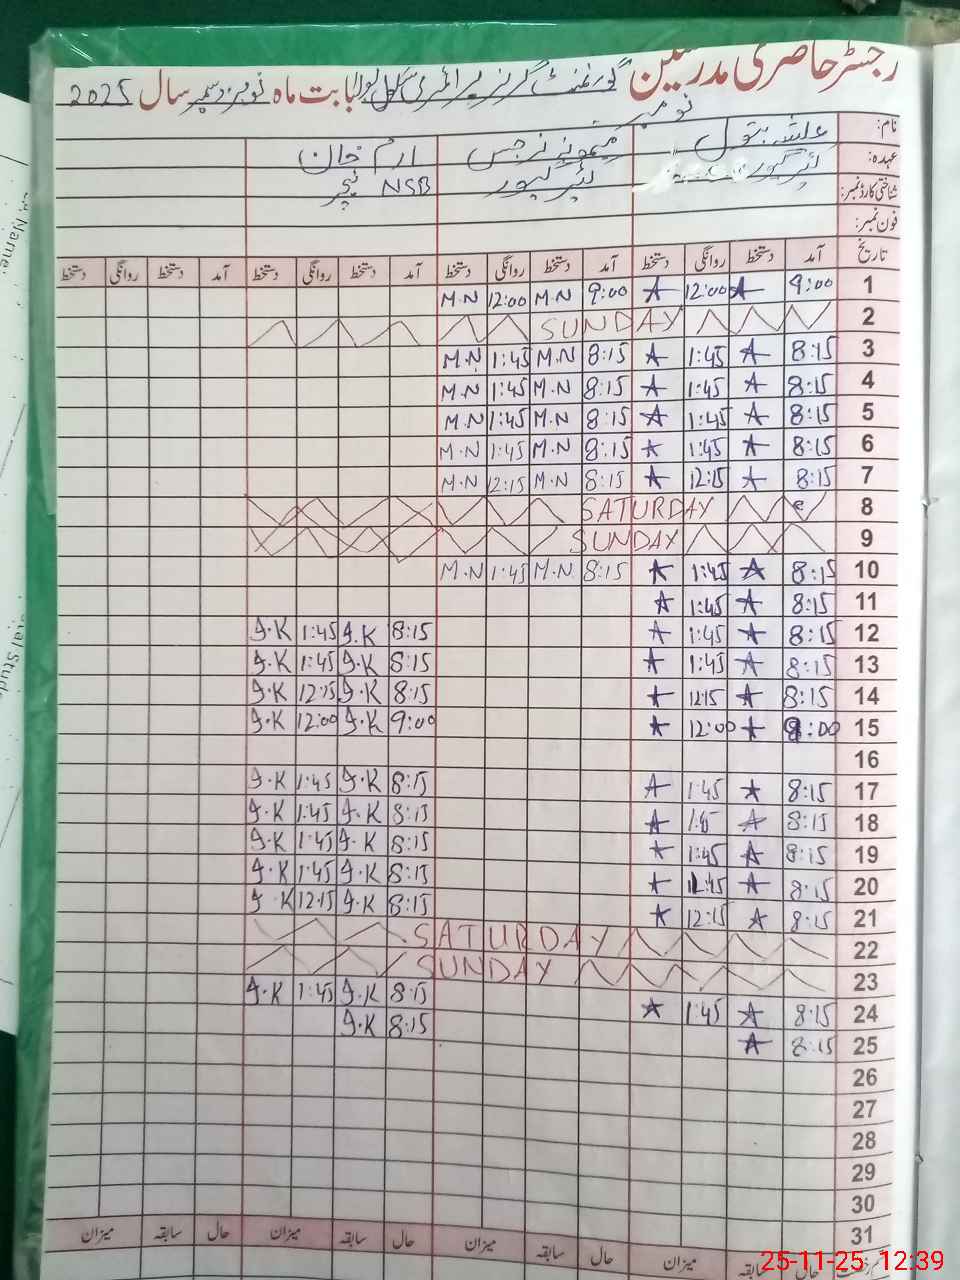 رجسٹر حاضری مدرسین گورنمنٹ گرلز پرائمری سکول بابت ماہ نومبر دسمبر سال 2025
نومبر
نام: علشبہ بتول میمونہ نرجس ارم خان
عہدہ: NSB ٹیچر
شناختی کارڈ نمبر:
فون نمبر:
تاریخ آمد دستخط روانگی دستخط آمد دستخط روانگی دستخط آمد دستخط روانگی دستخط آمد دستخط روانگی دستخط
1 9:00 A 12:00 A 9:00 M.N 12:00 M.N
2 SUNDAY
3 8:15 A 1:45 A 8:15 M.N 1:45 M.N
4 8:15 A 1:45 A 8:15 M.N 1:45 M.N
5 8:15 A 1:45 A 8:15 M.N 1:45 M.N
6 8:15 A 1:45 A 8:15 M.N 1:45 M.N
7 8:15 A 12:15 A 8:15 M.N 12:15 M.N
8 SATURDAY
9 SUNDAY
10 8:15 A 1:45 A 8:15 M.N 1:45 M.N
11 8:15 A 1:45 A
12 8:15 A 1:45 A 8:15 I.K 1:45 I.K
13 8:15 A 1:45 A 8:15 I.K 1:45 I.K
14 8:15 A 12:15 A 8:15 I.K 12:15 I.K
15 9:00 A 12:00 A 9:00 I.K 12:00 I.K
16
17 8:15 A 1:45 A 8:15 I.K 1:45 I.K
18 8:15 A A 8:15 I.K 1:45 I.K
19 8:15 A 1:45 A 8:15 I.K 1:45 I.K
20 8:15 A A 8:15 I.K 1:45 I.K
21 8:15 A 12:15 A 8:15 I.K 12:15 I.K
22 SATURDAY
23 SUNDAY
24 8:15 A 1:45 A 8:15 I.K 1:45 I.K
25 8:15 A 8:15 I.K
26
27
28
29
30
31
حال سابقہ میزان حال سابقہ میزان حال سابقہ میزان
سابقہ میزان
25-11-25 12:39